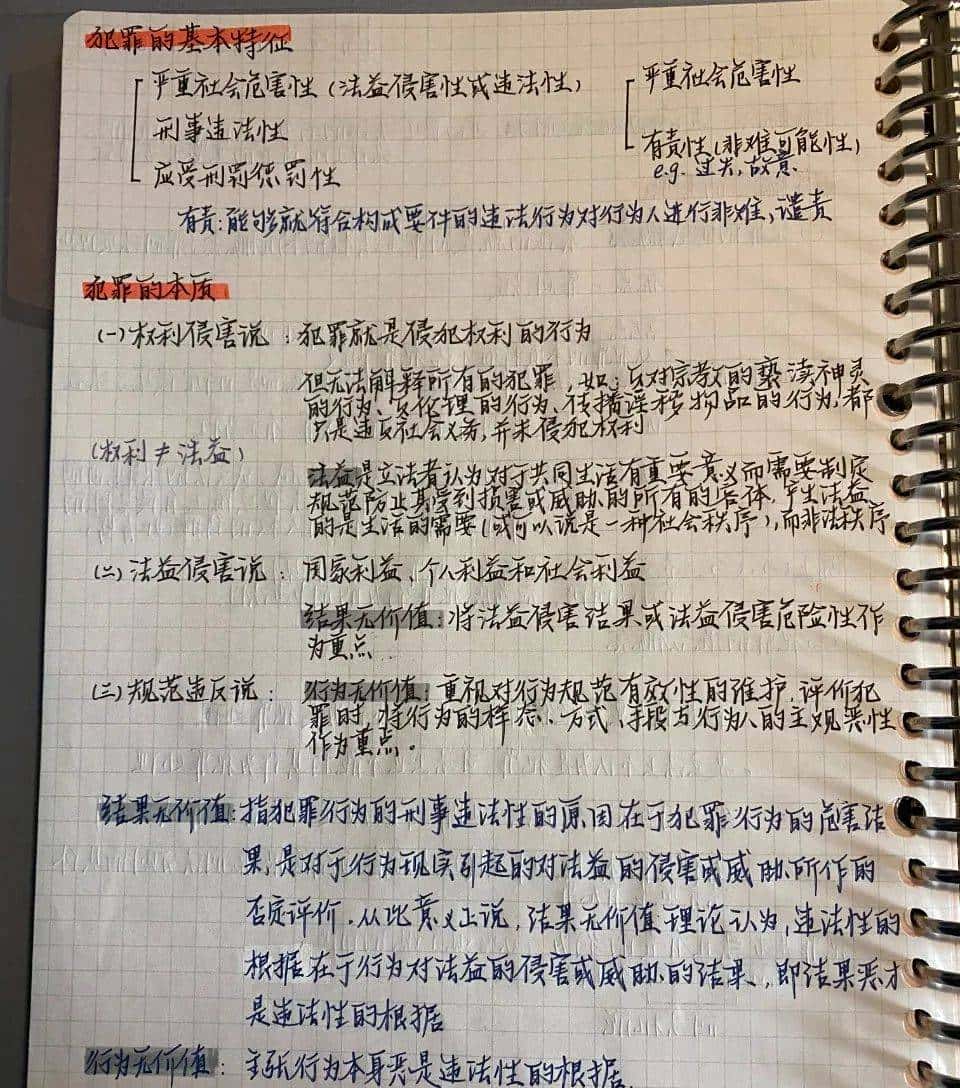 犯罪的基本特征
严重社会危害性（法益侵害性或违法性）
刑事违法性
应受刑罚惩罚性
严重社会危害性
有责性（非难可能性）
e.g. 过失，故意.
有责：能够就符合构成要件的违法行为对行为人进行非难、谴责
犯罪的本质
(一)权利侵害说：犯罪就是侵犯权利的行为
但无法解释所有的犯罪，如：反对宗教的亵渎神灵
的行为、反伦理的行为、传播淫秽物品的行为，都
只是违反社会义务，并未侵犯权利
(权利≠法益)
法益是立法者认为对于共同生活有重要意义而需要制定
规范防止其受到损害或威胁的所有的客体，产生法益
的是生活的需要(或可以说是一种社会秩序)，而非法秩序
(二)法益侵害说：国家利益、个人利益和社会利益
结果无价值：将法益侵害结果或法益侵害危险性作
为重点
(三)规范违反说：行为无价值：重视对行为规范有效性的维护，评价犯
罪时，将行为的样态、方式、手段与行为人的主观恶性
作为重点。
结果无价值：指犯罪行为的刑事违法性的原因在于犯罪行为的危害结
果，是对于行为现实引起的对法益的侵害或威胁所作的
否定评价，从此意义上说，结果无价值理论认为，违法性的
根据在于行为对法益的侵害或威胁的结果，即结果恶才
是违法性的根据
行为无价值：主张行为本身恶是违法性的根据.